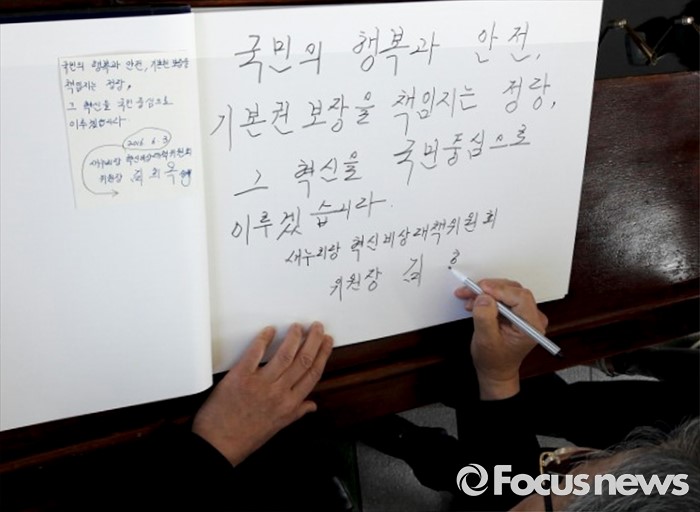 국민의 행복과 안전, 기본권 보장을
책임지는 정당,
그 혁신을 국민 중심으로
이루겠습니다.
2016. 6. 3
새누리당 혁신비상대책위원회
위원장 김희옥
국민의 행복과 안전,
기본권 보장을 책임지는 정당,
그 혁신을 국민중심으로
이루겠습니다.
새누리당 혁신비상대책위원회
위원장 김 ㅎ
Focusnews